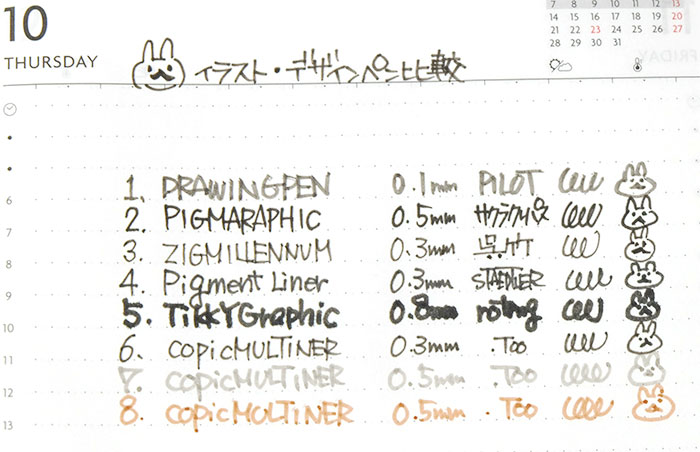 10
THURSDAY
7 8 9 10 11 12 13
14 15 16 17 18 19 20
21 22 23 24 25 26 27
28 29 30 31
イラスト・デザインペン比較
1. DRAWINGPEN 0.1mm PILOT
6
2. PIGMARAPHIC 0.5mm サクラクレパス
3. ZIGMILLENNUM 0.3mm 呉竹
8
4. Pigment Liner 0.3mm STAEDTLER
9
5. TikkYGraphic 0.8mm rotring
10
6. copicMULTINER 0.3mm .Too
11
7. copicMULTINER 0.5mm .Too
12
8. copicMULTINER 0.5mm .Too
13